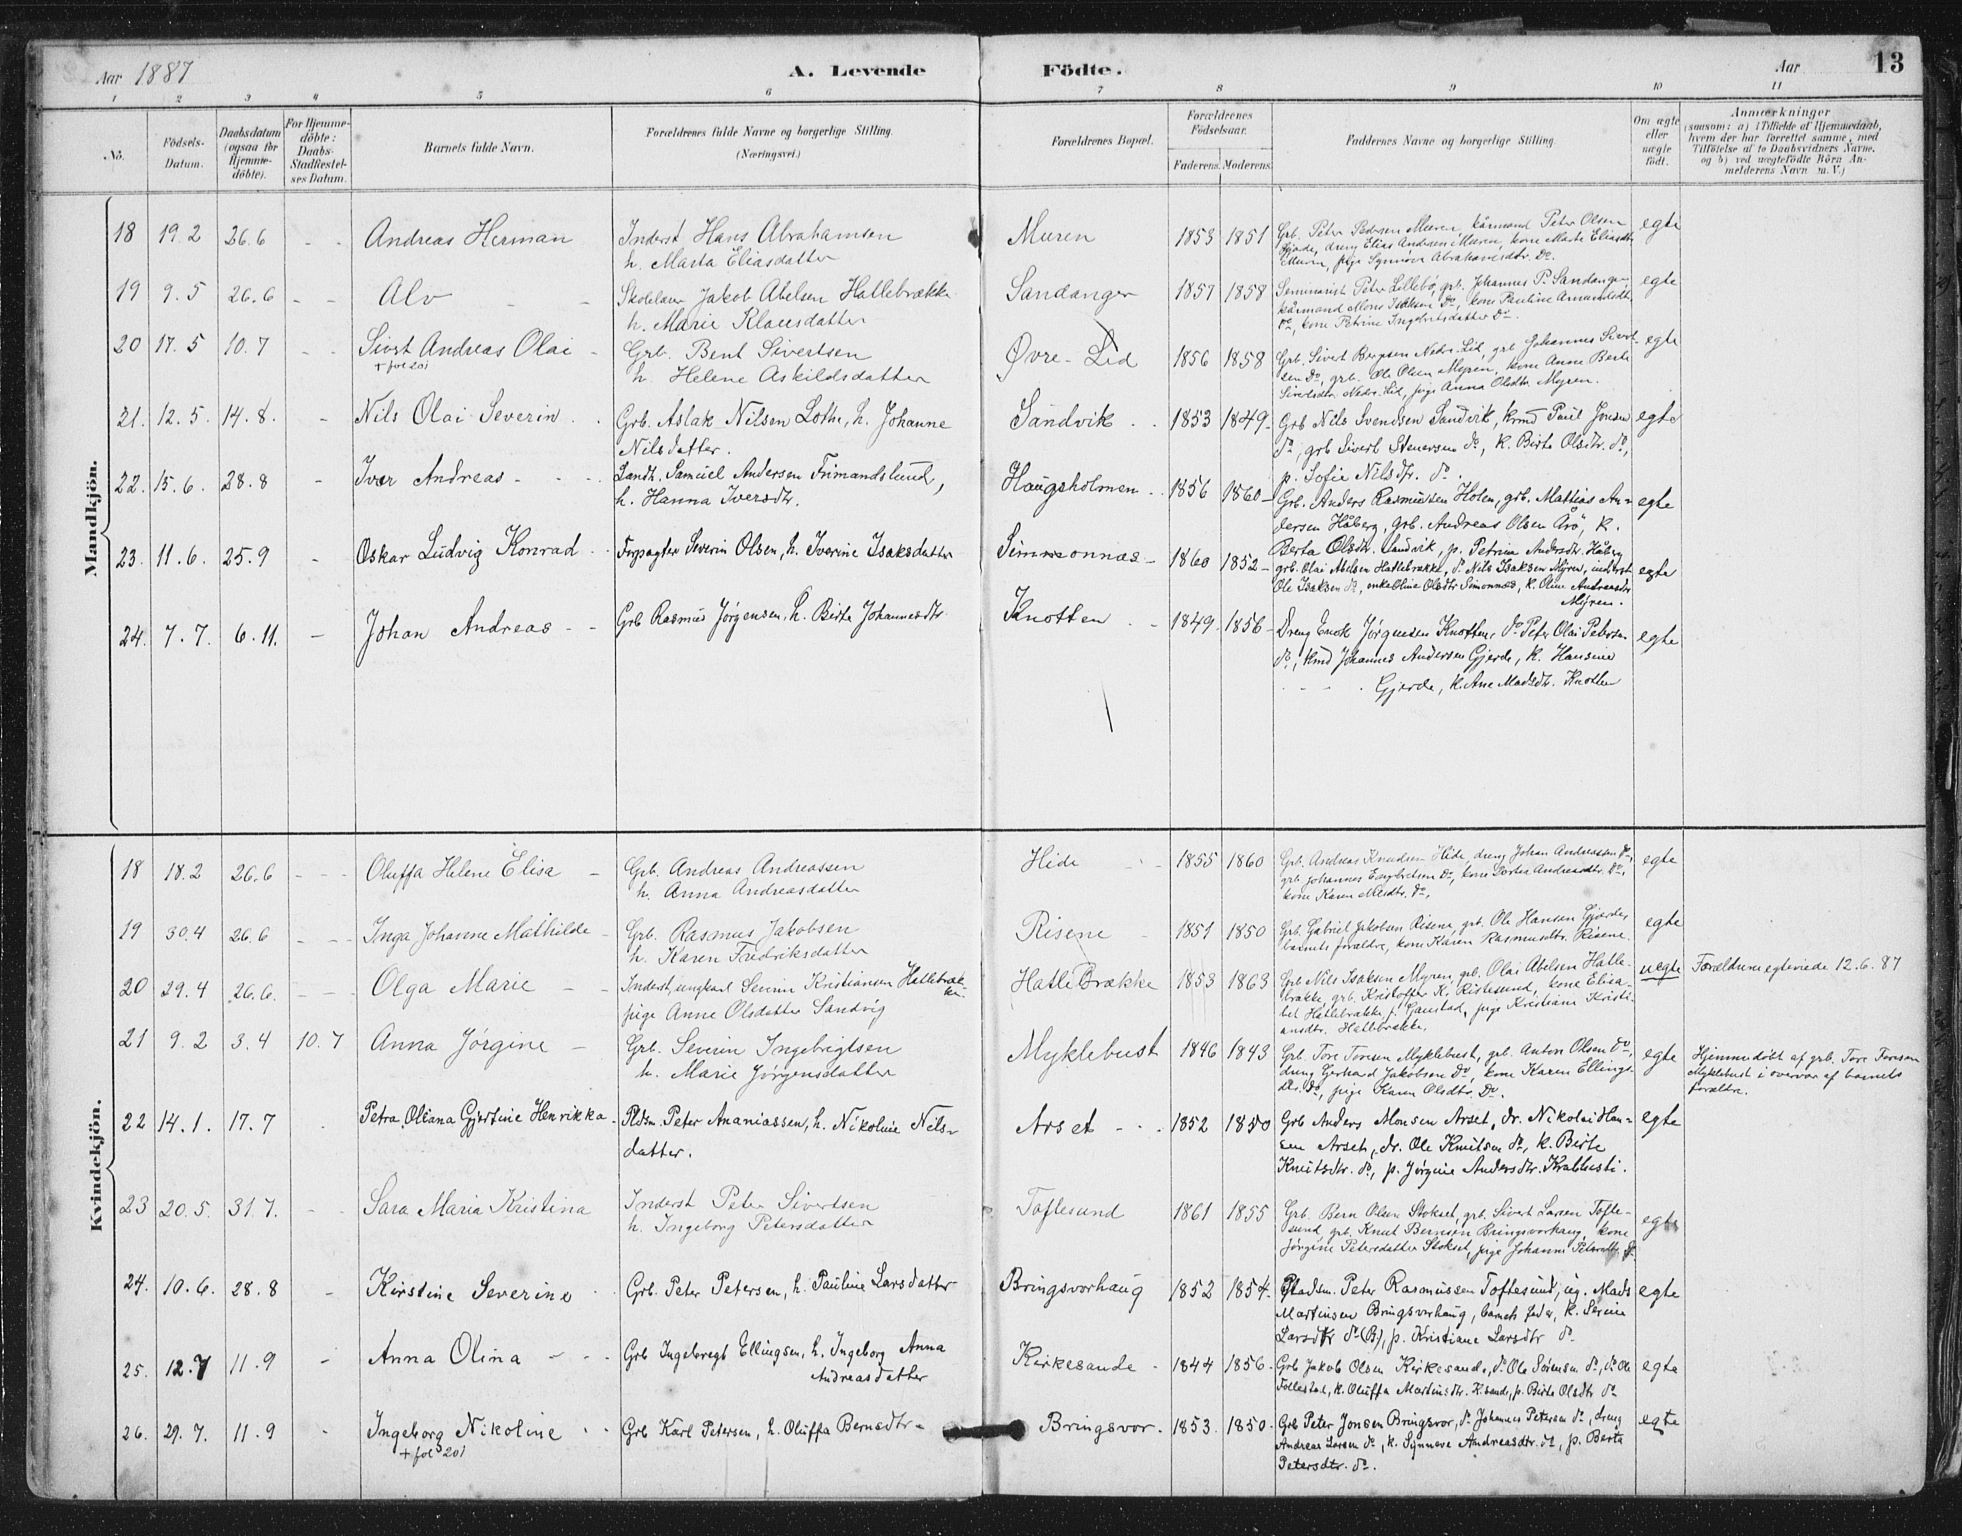 Aar 1887
A. Levende Födte.
Aar
13
1 2 3 4 5 6 7 8 9 10 11
No.
Födsels-Datum.
Daabsdatum (ogsaa for Hjemme-döbte).
For Hjemme-döbte: Daabs-Stadfæstel-ses Datum.
Barnets fulde Navn.
Forældrenes fulde Navne og borgerlige Stilling. (Næringsvei.)
Forældrenes Bopæl.
Forældrenes Födselsaar.
Faderens. Moderens.
Faddernes Navne og borgerlige Stilling.
Om ægte eller uægte födt.
Anmærkninger
(saasom: a) i Tilfælde af Hjemmedaab, hvem der har forrettet samme, med Tilföielse af to Daabsvidners Navne, og b) ved uægtefödte Börn An-melderens Navn m. V.)
Mandkjön.
18 19.2 26.6 - - Andreas Herman Inderst Hans Abrahamsen Muren 1853 1851 Grb. Peter Pedersen Muren, kårmand Peter Olsen egte
h. Marta Eliasdatter Gjerde, dreng Elias Andersen Muren, kone Marte Eliasdtr
Muren, pige Synnøve Abrahamsdtr. Do.
19 9.5 26.6 - - Alv - - Skolelærer Jakob Abelsen Hatlebrække Sandanger 1857 1858 Seminarist Peter Lillebø, grb. Johannes P. Sandanger, egte
h. Marie Klausdatter kårmand Mons Isaksen Do, kone Pauline Amundsdtr
Do, kone Petrine Ingebrigtsdatter Do.
20 17.5 10.7 - - Sivert Andreas Olai - Grb. Bent Sivertsen Øvre-Lid 1856 1858 Grb. Sivert Berntsen Nedre-Lid, grb Johannes Sivert- egte
+ fol 201 h. Helene Askildsdatter sen Do, grb. Ole Olsen Myren, kone Anne Berte
Sivertsdtr. Nedre-Lid, pige Anna Olsdtr. Myren.
21. 12.5. 14.8. - Nils Olai Severin . . Grb. Aslak Nilsen Lothe, h. Johanne Sandvik . . 1853 1849. Grb Nils Svendsen Sandvik, kmd Paul Jonsen egte
Nilsdatter. do, grb Sivert Stenersen do, k. Berte Olsdtr. do,
p. Sofie Nilsdtr. do.
22. 15.6. 28.8 - Iver Andreas - - - Landh. Samuel Andersen Frimandslund, Haugsholmen . 1856 1860- Grb. Anders Rasmussen Holen, grb. Mattias An- egte
h. Hanna Iversdtr. dersen Håberg, grb. Andreas Olsen Arø, k.
Berta Olsdtr. Sandvik, p. Petrine Andersdtr. Håberg
23. 11.6. 25.9 - Oskar Ludvig Konrad . . Forpagter Severin Olsen, h. Iverine Isaksdatter Simmonnæs - 1860 1852- grb. Olai Abelsen Hatlebrække, do Nils Isaksen Myren, inderst egte
Ole Isaksen do, enke Oline Olsdtr Simonnæs, k. Oline Andreasdtr
Myren.
24. 7.7. 6.11. - Johan Andreas - - Grb Rasmus Jørgensen, h. Berte Johannesdtr Knotten . - 1849. 1856- Dreng Enok Jørgensen Knotten, do Peter Olai Petersen egte
do, kmd Johannes Andersen Gjerde, k. Hansine
- - - . Gjerde, k. Ane Madsdtr. Knotten
Kvindekjön.
18 18.2 26.6 - - - Oluffa Helene Elisa - Grb. Andreas Andreassen Hide - - 1855 1860 Grb. Andreas Knudsen Hide, dreng Johan Andreassen do, egte
h. Anna Andreasdatter grb. Johannes Engbretsen Do, kone Dortea Andreasdtr. Do,
kone Karen Do.
19 30.4 26.6 - - - Inga Johanne Mathilde - Grb. Rasmus Jakobsen Risene - 1851 1850 Grb. Gabriel Jakobsen Risene, grb. Ole Hansen Gjærde, egte
h. Karen Fredriksdatter barnets forældre, kone Karen Rasmusdtr. Risene.
20 29.4 26.6. - - - Olga Marie - - Inderst, ungkarl Severin Kristiansen Hatlebræk-ke. HatleBrække 1853 1863 Grb Nils Isaksen Myren, grb. Olai Abelsen Hatle- uegte Forældrene egteviede 12.6.87
pige Anne Olsdatter Sandvig brække, grb. Kristoffer K. Ristesund, kone Elisa-
bet Hatlebrække, p. Gaustad, pige Kristiane Kristi-
ansdtr. Hatlebrække.
21 9.2 3.4 10.7 Anna Jørgine - Grb. Severin Ingebrigtsen Myklebust 1846 1843 Grb. Tore Toresen Myklebust, grb. Anton Olsen Do, egte Hjemmedøbt af grb. Tore Toresen
h. Marie Jørgensdatter dreng Gerhard Jakobsen Do, kone Karen Ellings- Myklebust i overvær af barnets
dtr. Do, pige Karen Olsdtr. Do. forældre.
22 14.1. 17.7 . Petra Oliana Gjertine Henrikka . Pldsm. Peter Ananiassen, h. Nikoline Nils- Arset - - . 1852 1850 Grb Anders Monsen Arset, dr. Nikolai Han- egte
datter. sen Arset, dr. Ole Knutsen do, k. Berte
Knutsdtr. do, p. Jørgine Andersdtr. Krabbesti.
23 20.5. 31.7. - - Sara Maria Kristina Inderst Peter Sivertsen Toftesund 1861 1855 Grb. Bern Olsen Stokset, grb. Sivert Larsen Tofte- egte
h. Ingeborg Petersdatter sund, grb. Knut Berntsen Bringsvorhaug, kone
Jørgine Petersdatter Stokset, pige Johanne Petersdtr. do
24. 10.6. 28.8 - Kirstine Severine . Grb. Peter Petersen, h. Pauline Larsdatter Bringsvorhaug 1852 1854. Pladsm. Peter Rasmussen Toftesund, ug. Mads egte
Martinsen Bringsvorhaug, barnets fader, k. Serine
Larsdtr do (B), p. Kristiane Larsdtr do.
25. 12.7 11.9 - Anna Olina - - - Grb Ingebregt Ellingsen, h. Ingeborg Anna Kirkesande - 1844 1856. Grb Jakob Olsen Kirkesande, do Ole Sørensen do, do Ole egte
Andreasdatter Follestad, k. Oluffa Martinsdtr. K.sande, p. Berte Olsdtr do
26. 29.7. 11.9 - Ingeborg Nikoline . . Grb Karl Petersen, h. Oluffa Bernsdtr - Bringsvor. 1853. 1850. Grb Peter Jonsen Bringsvor, do Johannes Petersen do, dreng egte
+ fol 201 Andreas Larsen do, k. Synneve Andreasdtr. do, p. Berta
Petersdtr. do.